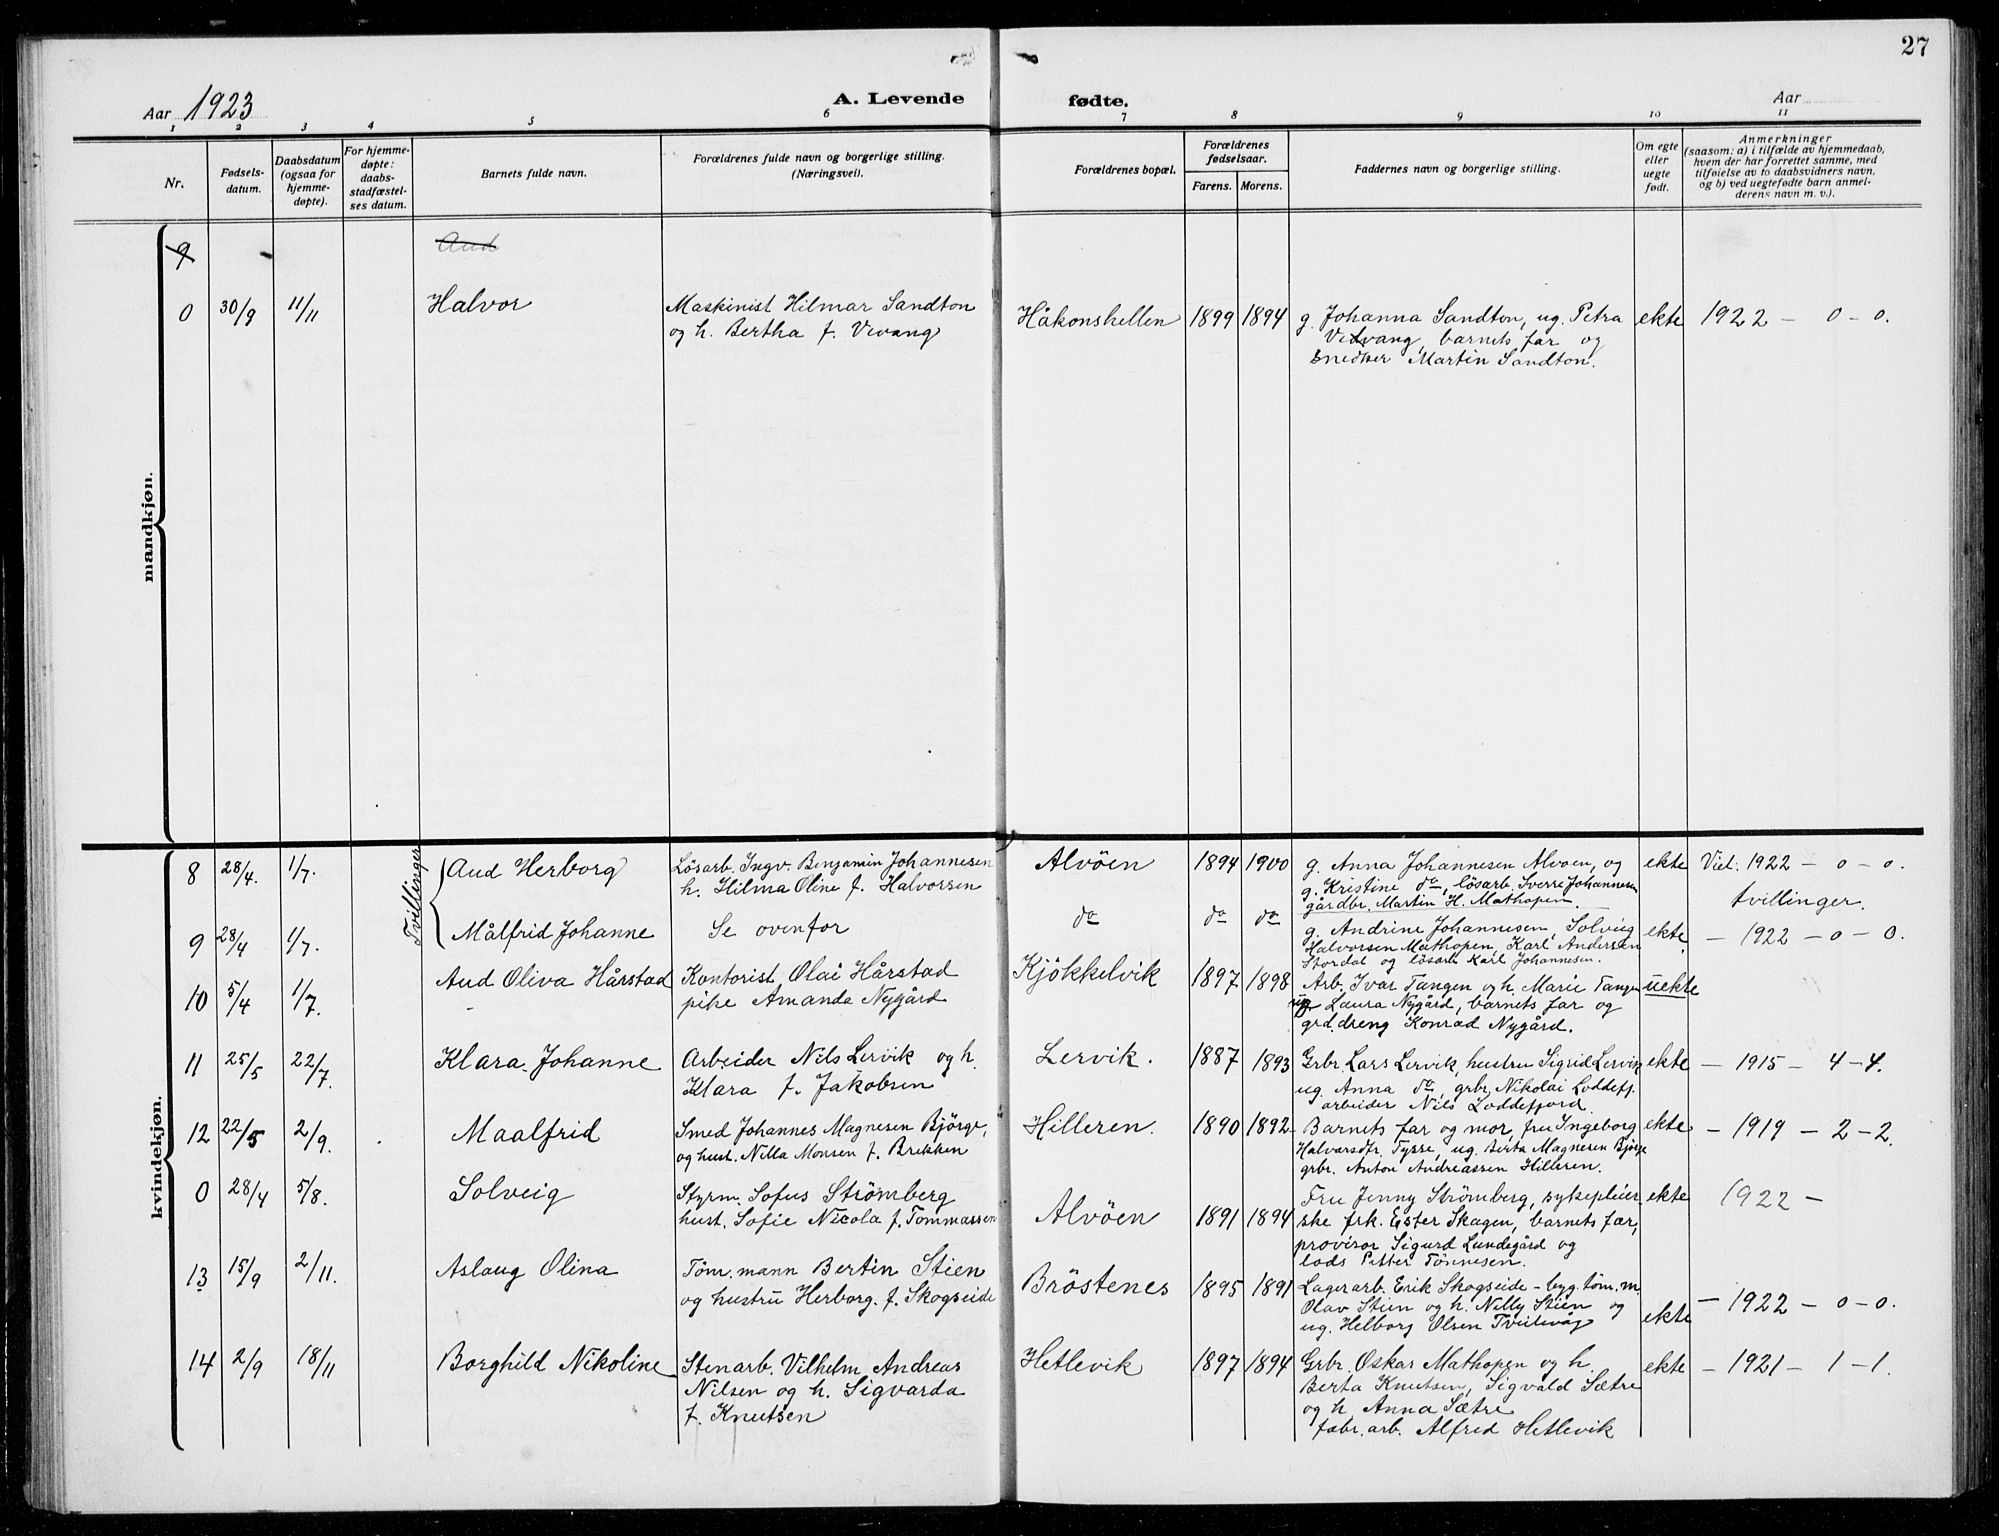 27
Aar 1923
A. Levende fødte.
Aar
1 2 3 4 5 6 7 8 9 10 11
Nr.
Fødsels-
datum.
Daabsdatum
(ogsaa for
hjemme-
døpte).
For hjemme-
døpte:
daabs-
stadfæstel-
ses datum.
Barnets fulde navn.
Forældrenes fulde navn og borgerlige stilling.
(Næringsvei).
Forældrenes bopæl.
Forældrenes
fødselsaar.
Farens. Morens.
Faddernes navn og borgerlige stilling.
Om egte
eller
uegte
født.
Anmerkninger
(saasom: a) i tilfælde av hjemmedaab,
hvem der har forrettet samme, med
tilføielse av to daabsvidners navn,
og b) ved uegtefødte barn anmel-
derens navn m. v.).
mandkjøn.
9 Aud
0 30/9 11/11 Halvor
Maskinist Hilmar Sandton
og h. Bertha f. Vevang
Håkonshellen 1899 1894
g. Johanna Sandton, ug. Petra
Vevang, barnets far og
snedker Martin Sandton.
ekte 1922 – 0 – 0.
kvindekjøn.
Tvillinger
8 28/4. 1/7. Aud Herborg
Lösarb. Ingv. Benjamin Johannesen
h. Hilma Oline f. Halvorsen
Alvöen 1894 1900
g. Anna Johannesen Alvoen, og
g. Kristine do, lösarb. Sverre Johannesen
gårdbr. Martin H. Mathopen.
ekte Vit. 1922 – 0 – 0.
tvillinger.
9 28/4 1/7. Målfrid Johanne
Se ovenfor
do do do
g. Andrine Johannesen, Solveig
Halvorsen Mathopen, Karl Andersen
Stordal og lösarb Karl Johannesen.
ekte – 1922 – 0 – 0.
10 5/4 1/7. Aud Oliva Hårstad
Kontorist Olai Hårstad
pike Amanda Nygård
Kjökkelvik 1897 1898
Arb. Ivar Tangen og h. Marie Tangen
ug. Laura Nygård, barnets far og
grd.dreng Konrad Nygård.
uekte
11 25/5 22/7. Klara Johanne
Arbeider Nils Lervik og h.
Klara f. Jakobsen
Lervik. 1887 1893
Grbr. Lars Lervik, hustru Sigrid Lervik
ug. Anna do, grbr. Nikolai Loddefj.
arbeider Nils Loddefjord.
ekte – 1915 – 4 – 4.
12 22/5 2/9. Maalfrid
Smed Johannes Magnesen Björge,
og hust. Nilla Monsen f. Brekken
Hilleren. 1890 1892
Barnets far og mor, fru Ingeborg
Halvarsdtr. Tysse, ug. Berta Magnesen Björge
grbr. Anton Andreassen Hilleren.
ekte – 1919 – 2 – 2.
0 28/4 5/8. Solveig
Styrm. Sofus Strömberg
hust. Sofie Nicola f. Tommassen
Alvöen 1891 1894
Fru Jenny Strömberg, sykepleier-
ske frk. Ester Skagen, barnets far,
provisor Sigurd Lundegård og
lods Petter Tönnesen.
ekte 1922 –
13 15/9 2/11. Aslaug Olina
Töm.mann Bertin Stien
og hustru Herborg. f. Skogseide
Bröstenes 1895 1891
Lagerarb. Erik Skogseide – byg.töm.m
Olav Stien og h. Nelly Stien og
ug. Helborg Olsen Tveitevåg
ekte – 1922 – 0 – 0.
14 2/9 18/11 Borghild Nikoline
Stenarb. Vilhelm Andreas
Nilsen og h. Sigvarda
f. Knutsen
Hetlevik 1897 1894
Grbr. Oskar Mathopen og h.
Berta Knutsen, Sigvald Sætre
og h Anna Sætre
fabr.arb. Alfred Hetlevik
ekte – 1921 – 1 – 1.